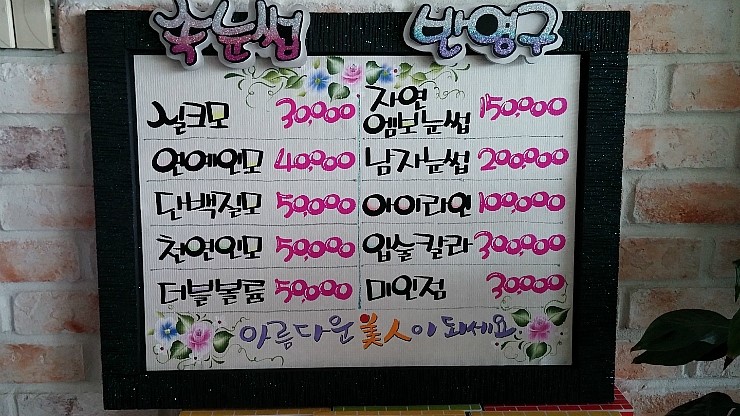 속눈썹 반영구
실크모 30,000
연예인모 40,000
단백질모 50,000
천연인모 50,000
더블볼륨 50,000
자연
엠보눈썹 150,000
남자눈썹 200,000
아이라인 100,000
입술칼라 300,000
미인점 30,000
아름다운 美人이 되세요